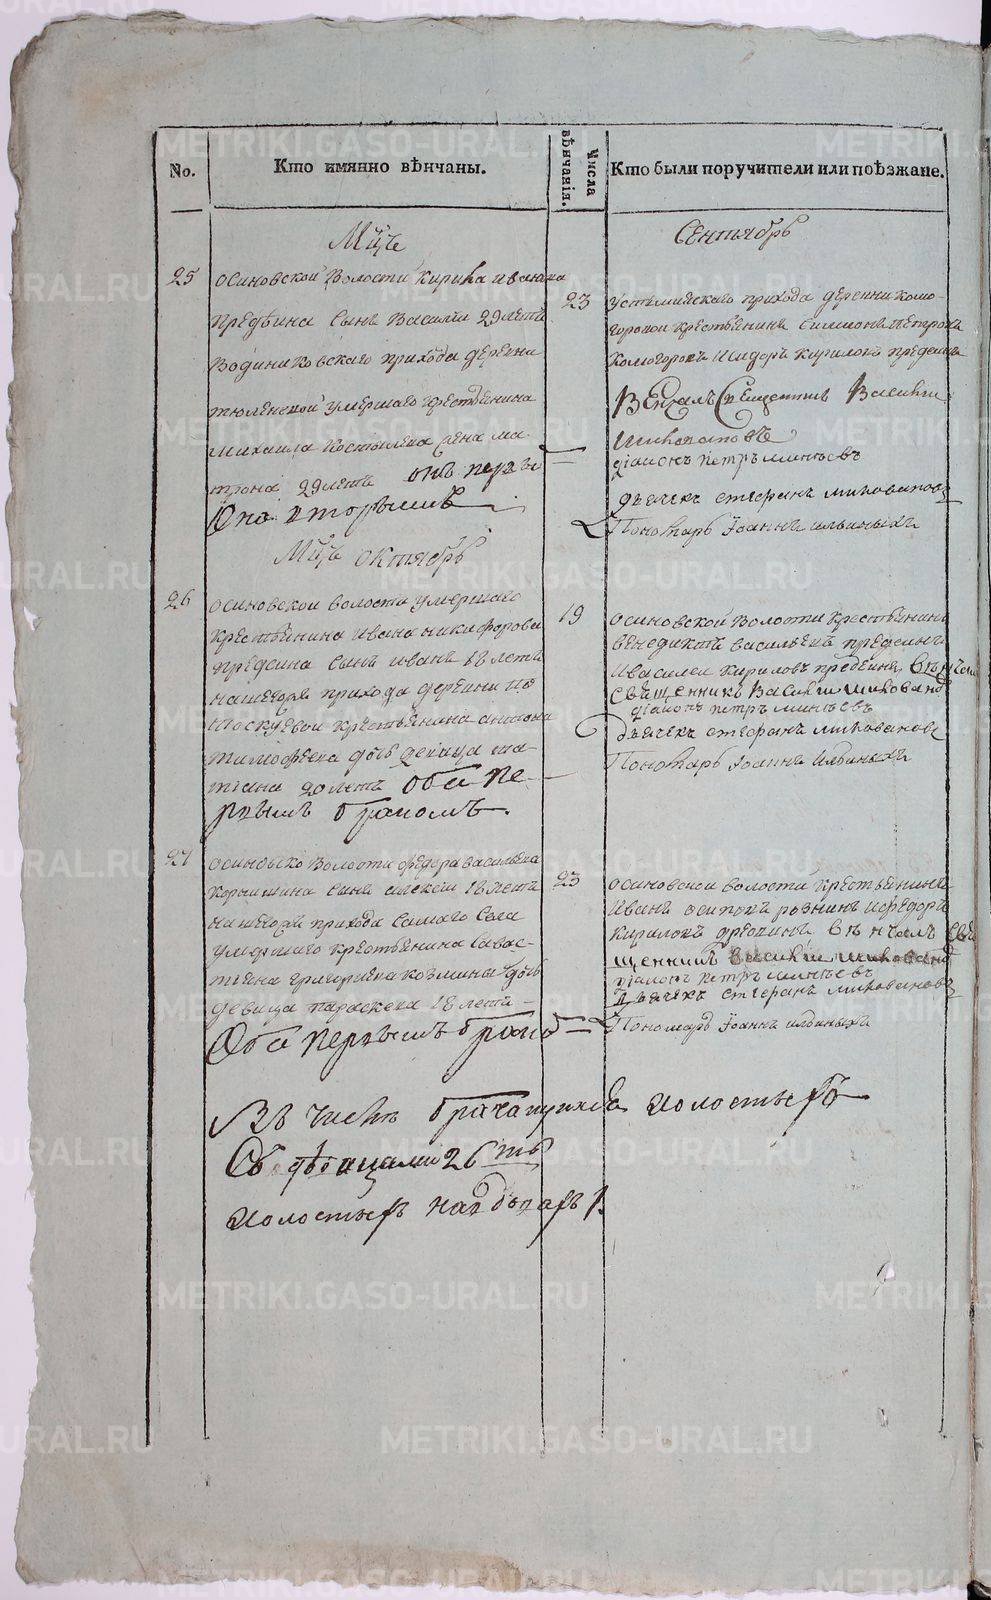 No.
Кто имянно вѣнчаны.
Числа вѣнчанія.
Кто были поручители или поѣзжане.
Мцъ
Сентябрь
25
осиновской волости Кирила иванова
предѣина сынъ Василий 29 летъ
приход деревни
тюленской умершаго крестьянина
михаила Костылева жена ма
трона 29 летъ онъ первы
Она вторымъ
23
прихода деревни комо
горовой крестьянинъ Симионъ петровъ
комогоровъ Исидоръ кириловъ предеинъ
Венчалъ Священникъ Василий
Миловановъ
діаконъ петръ минѣевъ
дьячекъ стефанъ миловановъ
Пономарь Іоаннъ ильиныхъ
Мцъ октябрь
26
осиновской волости умершаго
крестьянина ивана никифорова
предеина сынъ иванъ 18 летъ
нашегожъ прихода деревни
крестьянина антона
тимофеева дочь девица та
тиана 20 летъ оба пе-
рвымъ бракомъ.
19
осиновской волости крестьянинъ
венедиктъ васильевъ предеинъ
ивасилей кириловъ предѣинъ вѣнчал
священникъ Василий миловано
діаконъ петръ минѣевъ
дьячекъ стефанъ миловановъ
Пономарь Іоаннъ Ильиныхъ
27
волости федора васильева
сынъ алексѣй 18 летъ
нашегожъ прихода самаго села
умершаго крестьянина савас-
тьяна григорьева козмина дочь
девица параскева 18 летъ
Оба первымъ бракомъ
23
осиновской волости крестьянинъ
Иванъ осиповъ ифедоръ
кириловъ вѣнчалъ свя
щенникъ василий миловано
діаконъ петръ минѣевъ
дьячекъ стефанъ миловановъ
Пономарь Іоаннъ ильиныхъ
Въ числѣ холостыхъ
Съ дѣвицами 26ть
холостыхъ на вдовахъ 1
METRIKI.GASO-URAL.RU